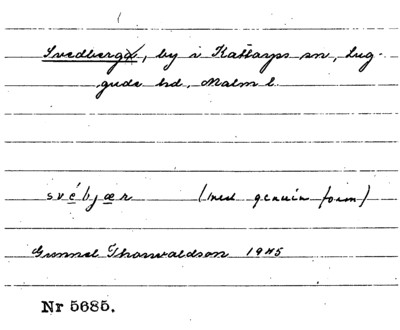 Svedberga, by i Kattarps sn, Lug-
gude hd, Malm l.
svébjær (med genuin form)
Gunnel Thorwaldson 1945
Nr 5685.